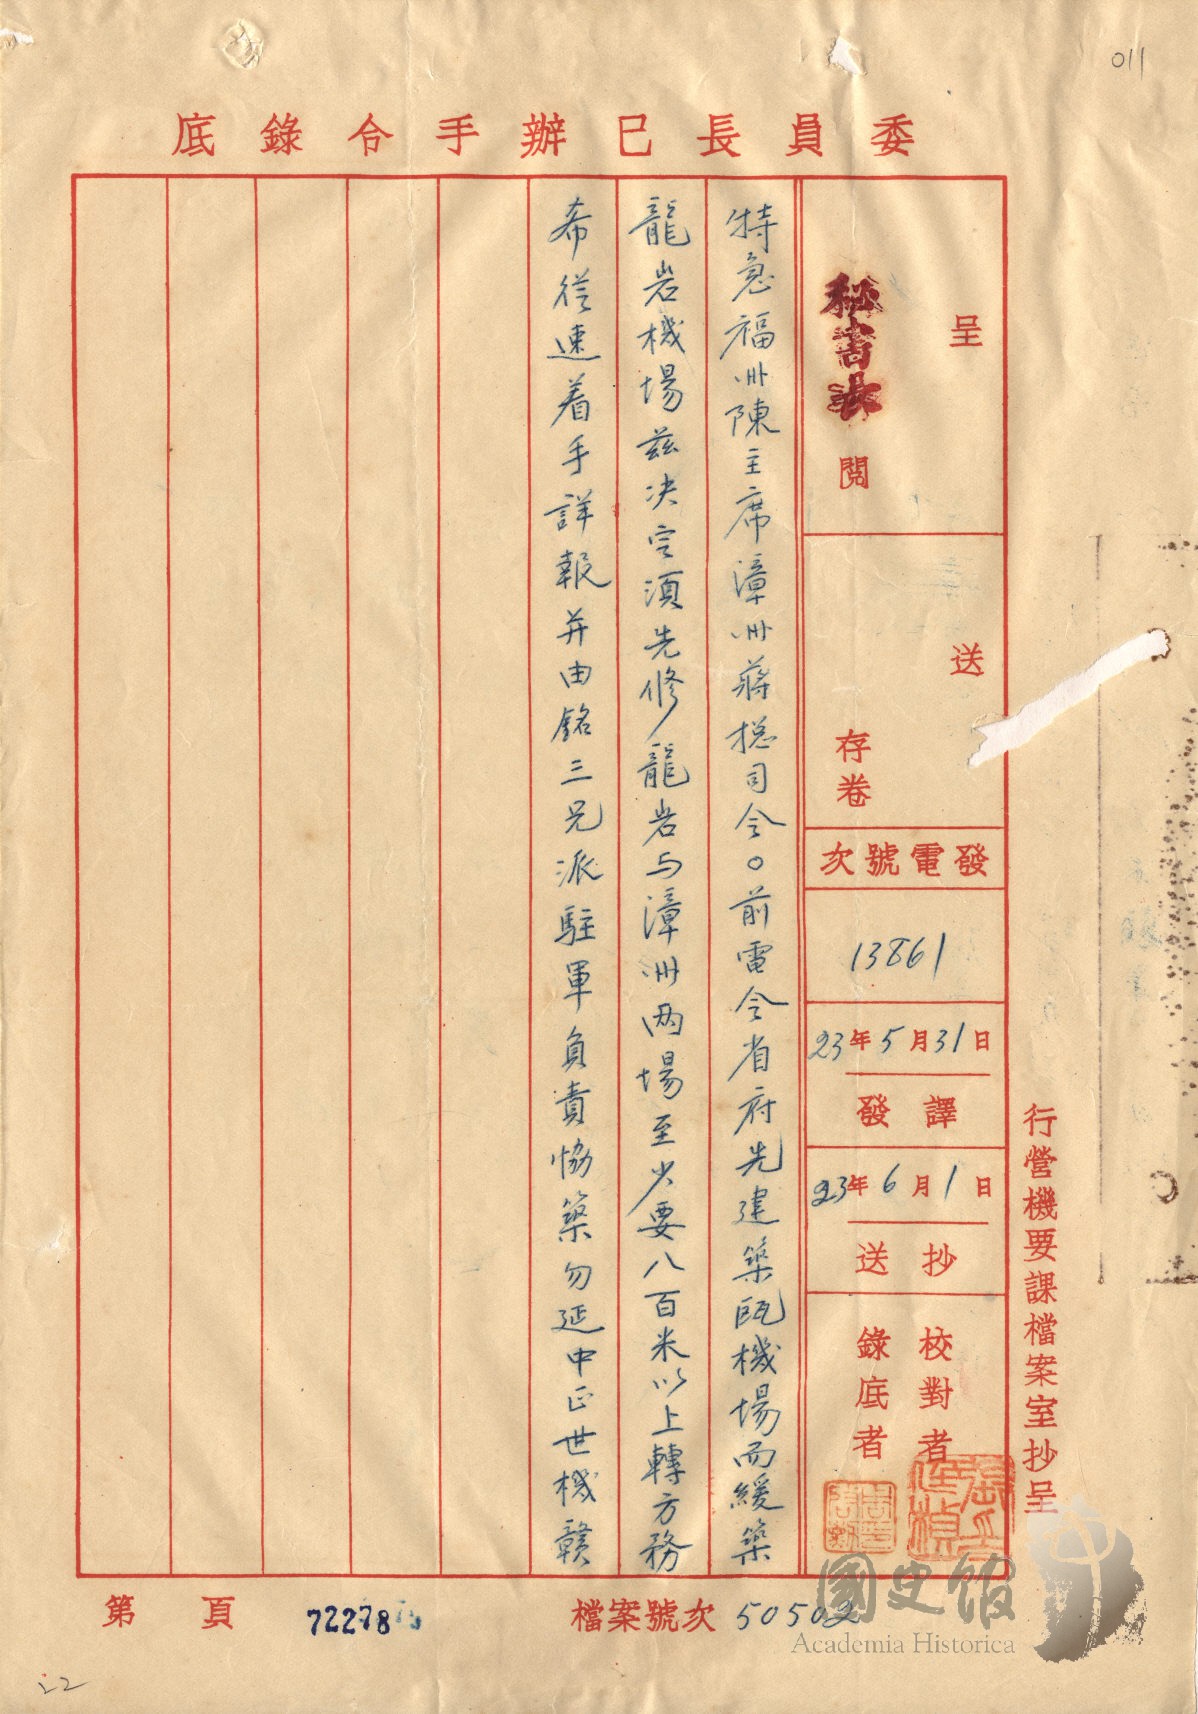 011
委員長已辦手令錄底
呈
秘書長 閱
送
存卷
發電號次
13861
23年5月31日
譯發
23年6月1日
抄送
校對者
錄底者
特急福州陳主席漳州蔣總司令○前電令省府先建築甌機場而緩築
龍岩機場茲決定須先修龍岩与漳州両場至少要八百米以上轉方務
希從速着手詳報并由銘三兄派駐軍負責協築勿延中正世機贛
行營機要課檔案室抄呈
第 頁
72278
檔案號次 50502
國史館
Academia Historica